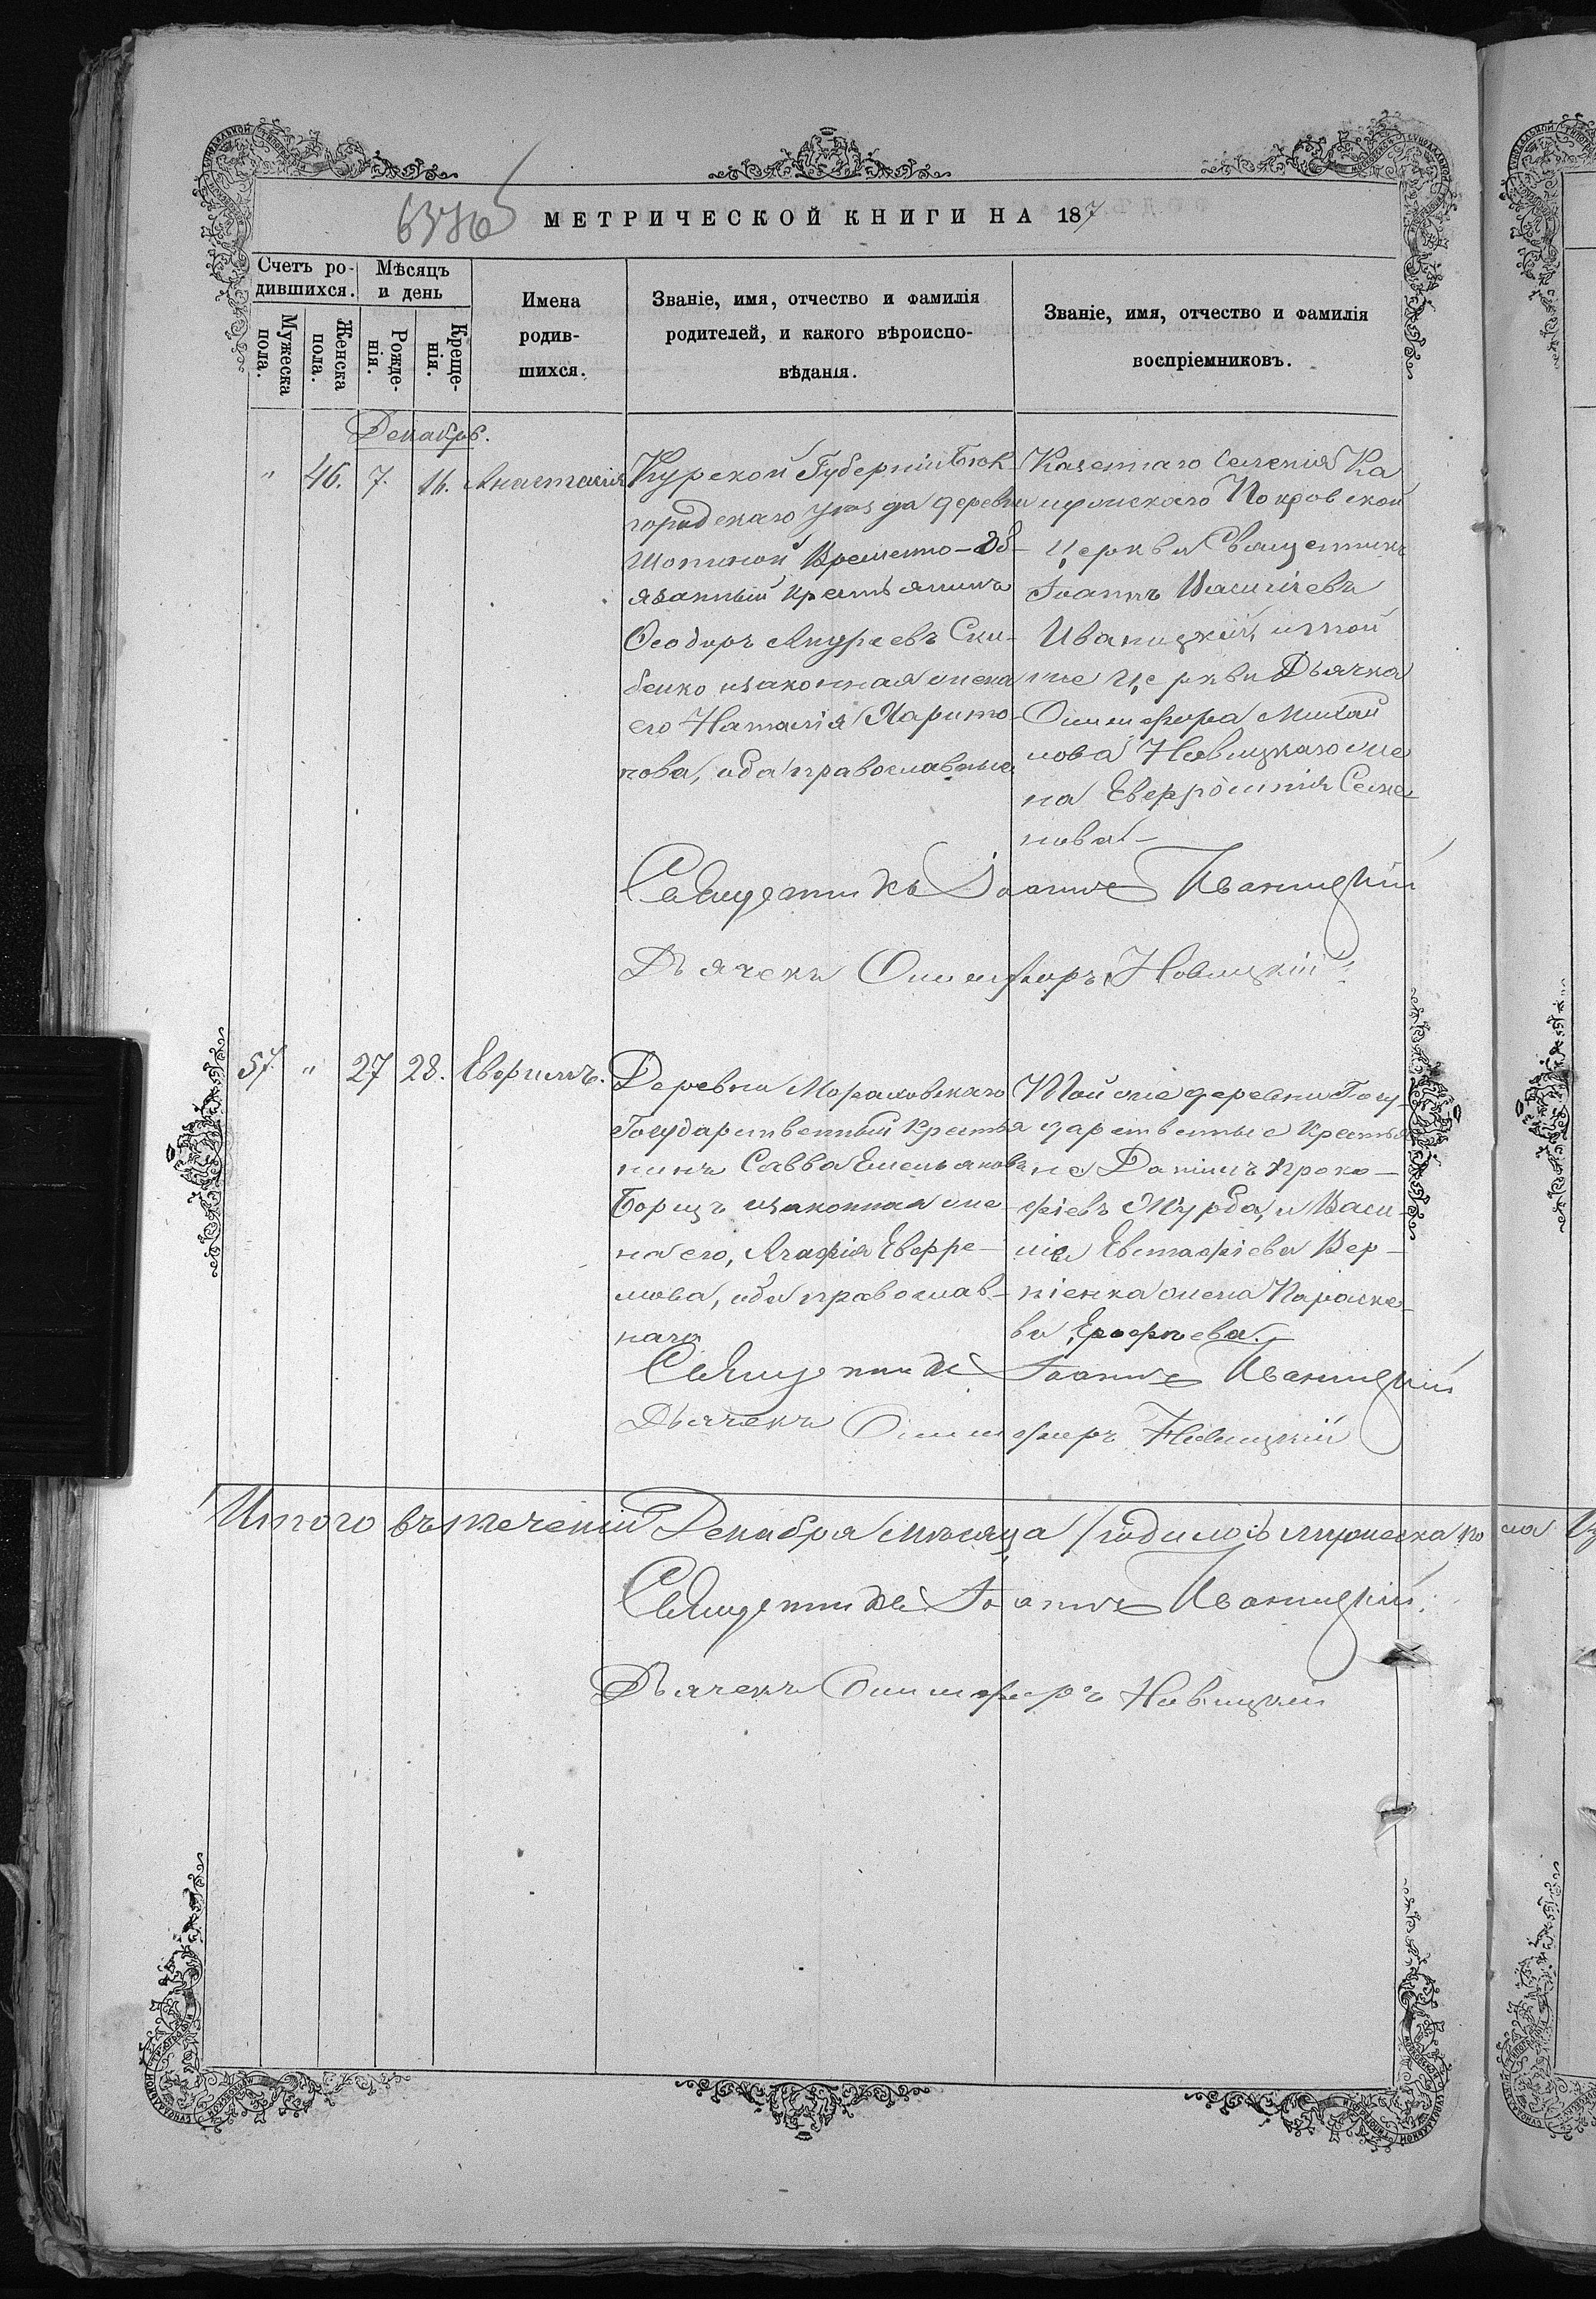 МЕТРИЧЕСКОЙ КНИГИ НА 187
Счетъ ро-
дившихся.
Мужеска пола.
Женска пола.
Мѣсяцъ
и день
Рожде-
нія.
Креще-
нія.
Имена
родив-
шихся.
Званіе, имя, отчество и фамилія
родителей, и какого вѣроиспо-
вѣданія.
Званіе, имя, отчество и фамилія
воспріемниковъ.
Декабрь.
" 46. 7. 16. Анастасія
Курской Губерніи
уѣзда деревни
Временно-Об-
язанный крестьянинъ
Ѳеодоръ Андреевъ Ски-
бенко и законная жена
его Наталія Харито-
нова, оба православные
Казеннаго Селенія Ка
Покровской
церкви Священникъ
Іоаннъ Васильевъ
Иваницкій, и той
же церкви Дьячка
Онисифора Михай
лова Новицкаго же
на Евфросинія Семе
нова.
Священникъ Іоаннъ Иваницкій
Дьячекъ Онисифоръ Новицкій
57. " 27 28. Ефимъ.
Деревни
Государственный Крестья
нинъ Савва Емельяновъ
Борицъ и законная же
на его, Агафія Ефре-
мова, оба православ-
наго
Той же деревни Госу-
дарственные Крестья
не Даніилъ Проко-
фіевъ Журба, и Васи-
лія Евстафіева Вер-
жена Параске-
ва Ерофѣева.
Священникъ Іоаннъ Иваницкій
Дьячекъ Онисифоръ Новицкій
Итого въ теченіи Декабря мѣсяца родилось мужеска пола
Священникъ Іоаннъ Иваницкій.
Дьячекъ Онисифоръ Новицкій